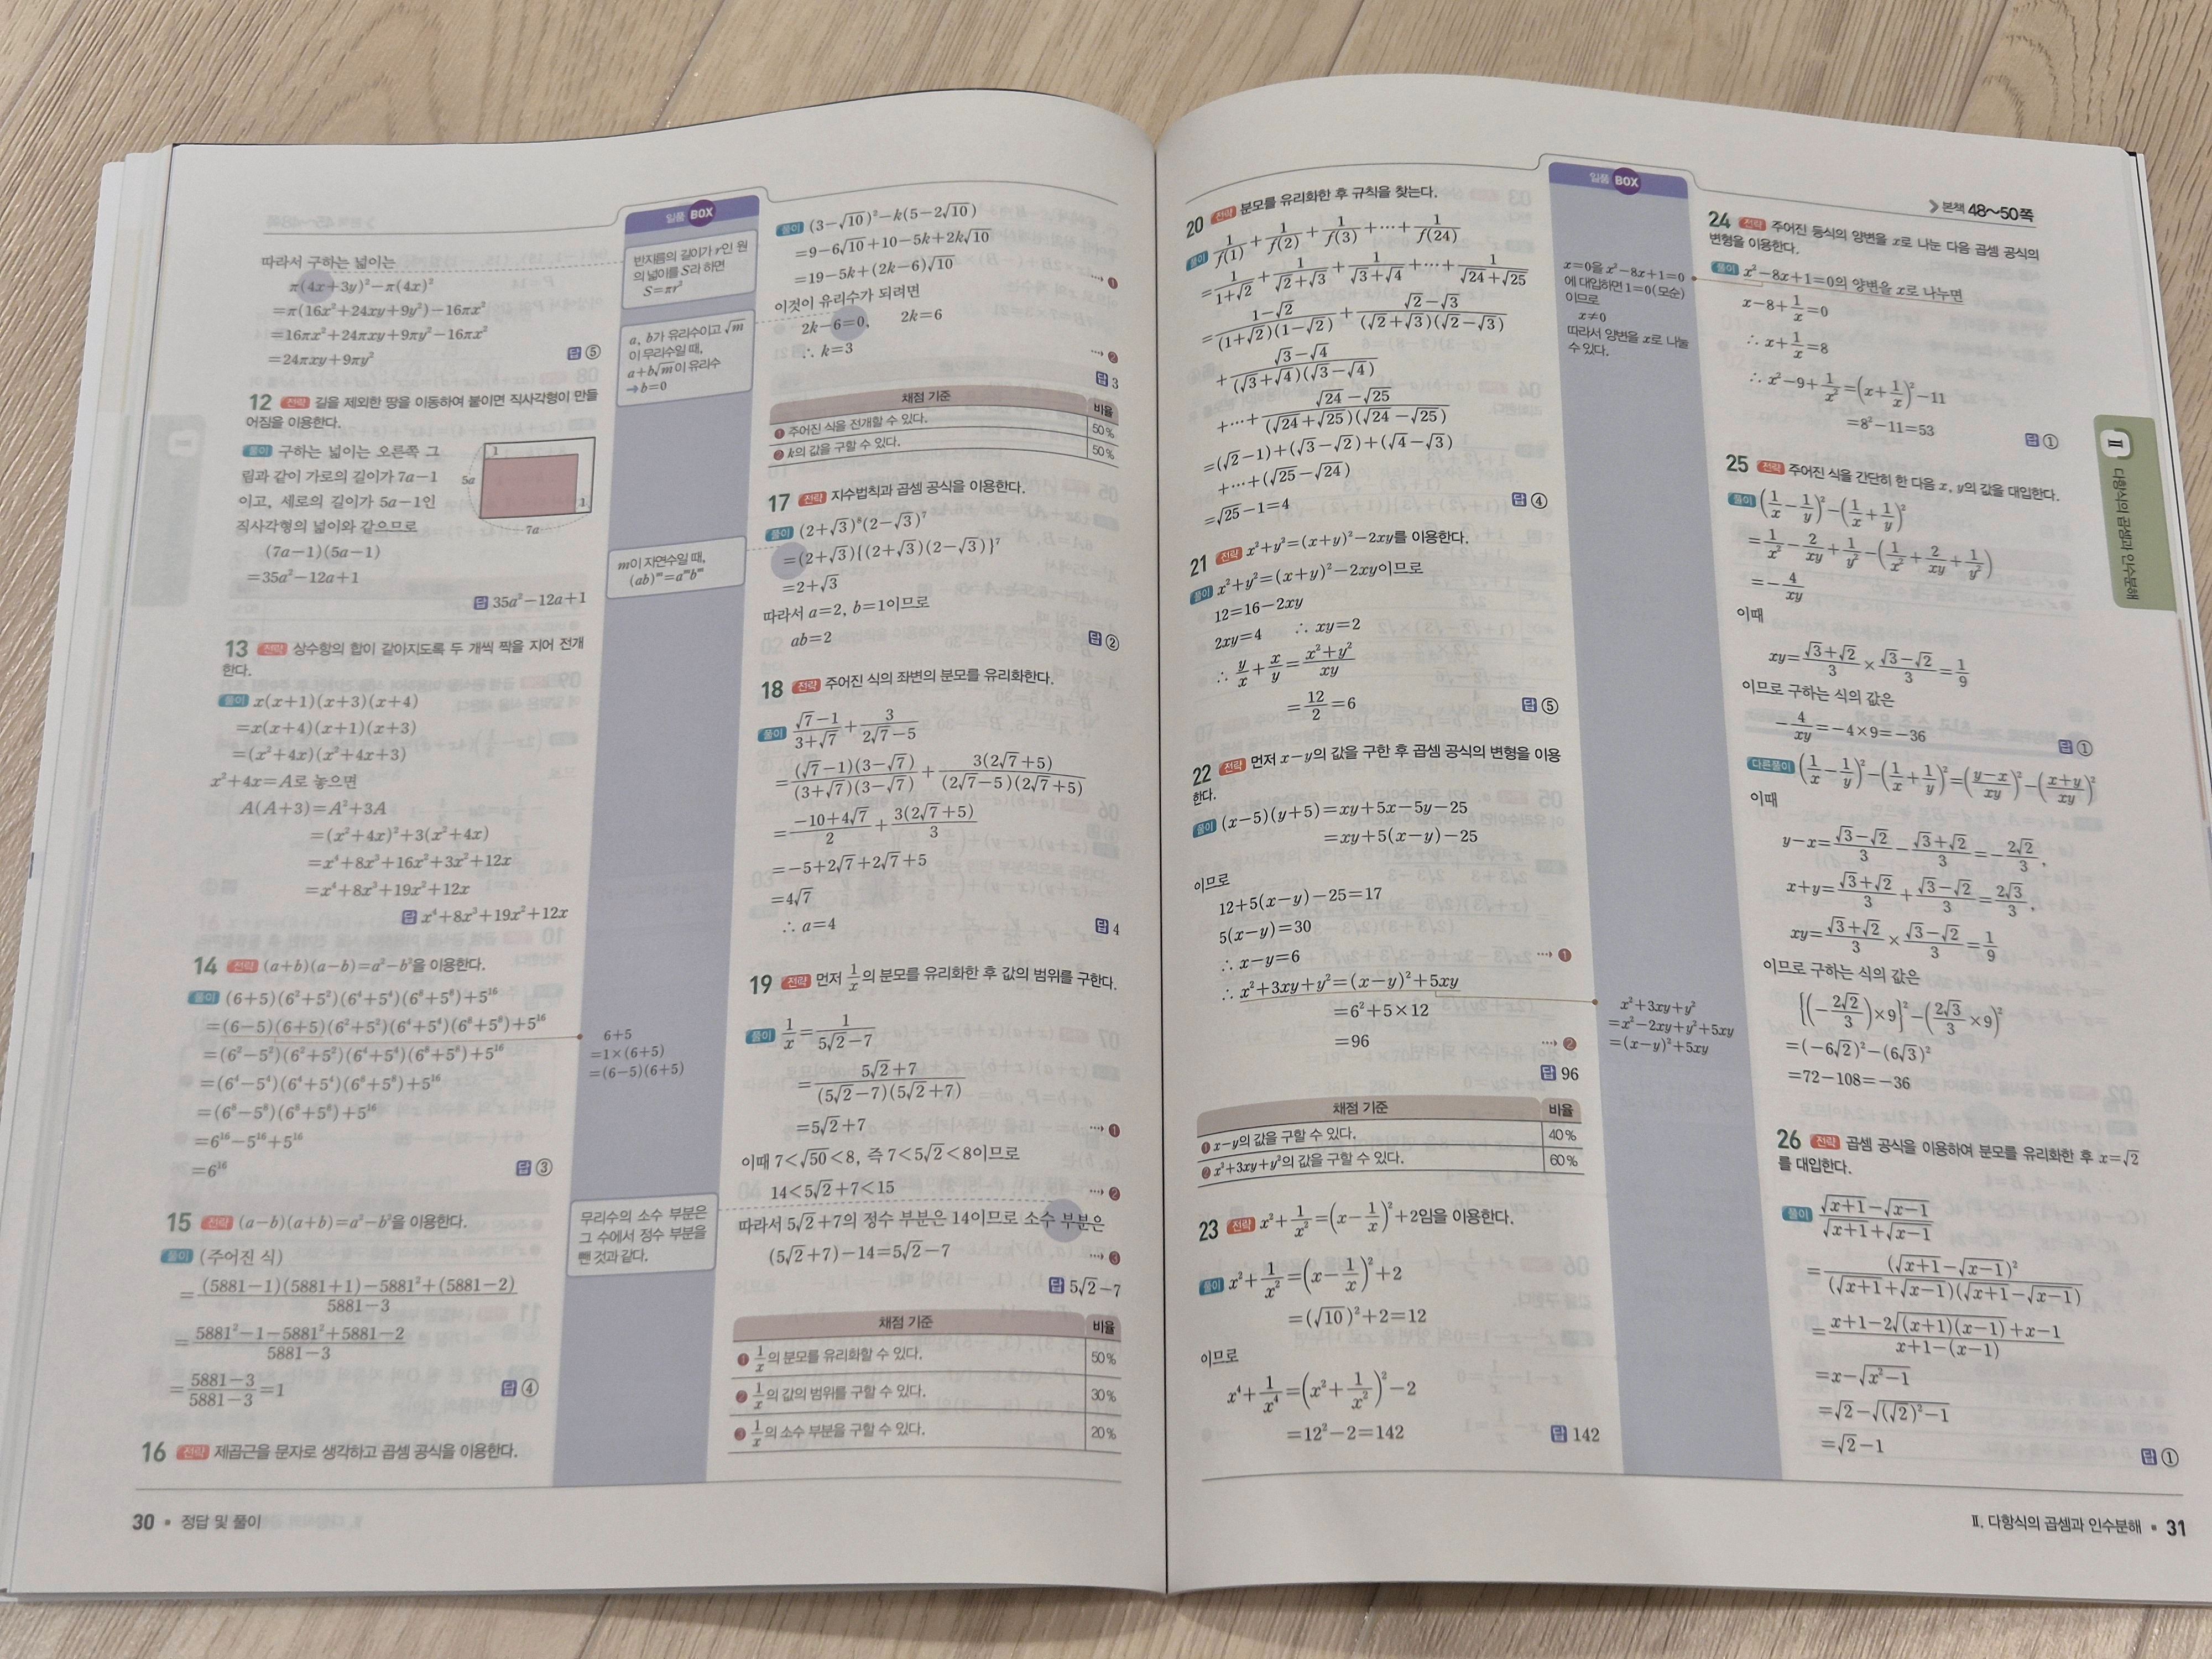 따라서 구하는 넓이는
π(4x+3y)²-π(4x)²
=π(16x²+24xy+9y²)-16πx²
=16πx²+24πxy+9πy²-16πx²
=24πxy+9πy²
답 ⑤
12 전략 길을 제외한 땅을 이동하여 붙이면 직사각형이 만들
어짐을 이용한다.
풀이 구하는 넓이는 오른쪽 그
림과 같이 가로의 길이가 7a-1
이고, 세로의 길이가 5a-1인
직사각형의 넓이와 같으므로
1
5a
1
7a
(7a-1)(5a-1)
=35a²-12a+1
답 35a²-12a+1
13 전략 상수항의 합이 같아지도록 두 개씩 짝을 지어 전개
한다.
풀이 x(x+1)(x+3)(x+4)
=x(x+4)(x+1)(x+3)
=(x²+4x)(x²+4x+3)
x²+4x=A로 놓으면
A(A+3)=A²+3A
=(x²+4x)²+3(x²+4x)
=x⁴+8x³+16x²+3x²+12x
=x⁴+8x³+19x²+12x
답 x⁴+8x³+19x²+12x
14 전략 (a+b)(a-b)=a²-b²을 이용한다.
풀이 (6+5)(6²+5²)(6⁴+5⁴)(6⁸+5⁸)+5¹⁶
=(6-5)(6+5)(6²+5²)(6⁴+5⁴)(6⁸+5⁸)+5¹⁶
=(6²-5²)(6²+5²)(6⁴+5⁴)(6⁸+5⁸)+5¹⁶
=(6⁴-5⁴)(6⁴+5⁴)(6⁸+5⁸)+5¹⁶
=(6⁸-5⁸)(6⁸+5⁸)+5¹⁶
=6¹⁶-5¹⁶+5¹⁶
=6¹⁶
답 ③
15 전략 (a-b)(a+b)=a²-b²을 이용한다.
풀이 (주어진 식)
=\frac{(5881-1)(5881+1)-5881²+(5881-2)}{5881-3}
=\frac{5881²-1-5881²+5881-2}{5881-3}
=\frac{5881-3}{5881-3}=1
답 ④
16 전략 제곱근을 문자로 생각하고 곱셈 공식을 이용한다.
일품 BOX
반지름의 길이가 r인 원
의 넓이를 S라 하면
S=πr²
a, b가 유리수이고 √m
이 무리수일 때,
a+b√m이 유리수
➔ b=0
m이 자연수일 때,
(ab)ᵐ=aᵐbᵐ
6+5
=1×(6+5)
=(6-5)(6+5)
무리수의 소수 부분은
그 수에서 정수 부분을
뺀 것과 같다.
풀이 (3-√10)²-k(5-2√10)
=9-6√10+10-5k+2k√10
=19-5k+(2k-6)√10
···➔ ❶
이것이 유리수가 되려면
2k-6=0, 2k=6
∴ k=3
···➔ ❷
답 3
채점 기준 비율
❶ 주어진 식을 전개할 수 있다. 50%
❷ k의 값을 구할 수 있다. 50%
17 전략 지수법칙과 곱셈 공식을 이용한다.
풀이 (2+√3)⁸(2-√3)⁷
=(2+√3){(2+√3)(2-√3)}⁷
=2+√3
따라서 a=2, b=1이므로
ab=2
답 ②
18 전략 주어진 식의 좌변의 분모를 유리화한다.
풀이 \frac{√7-1}{3+√7}+\frac{3}{2√7-5}
=\frac{(√7-1)(3-√7)}{(3+√7)(3-√7)}+\frac{3(2√7+5)}{(2√7-5)(2√7+5)}
=\frac{-10+4√7}{2}+\frac{3(2√7+5)}{3}
=-5+2√7+2√7+5
=4√7
∴ a=4
답 4
19 전략 먼저 \frac{1}{x}의 분모를 유리화한 후 값의 범위를 구한다.
풀이 \frac{1}{x}=\frac{1}{5√2-7}
=\frac{5√2+7}{(5√2-7)(5√2+7)}
=5√2+7
···➔ ❶
이때 7<√50<8, 즉 7<5√2<8이므로
14<5√2+7<15
···➔ ❷
따라서 5√2+7의 정수 부분은 14이므로 소수 부분은
(5√2+7)-14=5√2-7
···➔ ❸
답 5√2-7
채점 기준 비율
❶ \frac{1}{x}의 분모를 유리화할 수 있다. 50%
❷ \frac{1}{x}의 값의 범위를 구할 수 있다. 30%
❸ \frac{1}{x}의 소수 부분을 구할 수 있다. 20%
30 ▪ 정답 및 풀이
20 전략 분모를 유리화한 후 규칙을 찾는다.
풀이 \frac{1}{f(1)}+\frac{1}{f(2)}+\frac{1}{f(3)}+···+\frac{1}{f(24)}
=\frac{1}{1+√2}+\frac{1}{√2+√3}+\frac{1}{√3+√4}+···+\frac{1}{√24+√25}
=\frac{1-√2}{(1+√2)(1-√2)}+\frac{√2-√3}{(√2+√3)(√2-√3)}
+\frac{√3-√4}{(√3+√4)(√3-√4)}
+···+\frac{√24-√25}{(√24+√25)(√24-√25)}
=(√2-1)+(√3-√2)+(√4-√3)
+···+(√25-√24)
=√25-1=4
답 ④
21 전략 x²+y²=(x+y)²-2xy를 이용한다.
풀이 x²+y²=(x+y)²-2xy이므로
12=16-2xy
2xy=4 ∴ xy=2
∴ \frac{y}{x}+\frac{x}{y}=\frac{x²+y²}{xy}
=\frac{12}{2}=6
답 ⑤
22 전략 먼저 x-y의 값을 구한 후 곱셈 공식의 변형을 이용
한다.
풀이 (x-5)(y+5)=xy+5x-5y-25
=xy+5(x-y)-25
이므로
12+5(x-y)-25=17
5(x-y)=30
∴ x-y=6
···➔ ❶
∴ x²+3xy+y²=(x-y)²+5xy
=6²+5×12
=96
···➔ ❷
답 96
채점 기준 비율
❶ x-y의 값을 구할 수 있다. 40%
❷ x²+3xy+y²의 값을 구할 수 있다. 60%
23 전략 x²+\frac{1}{x²}=(x-\frac{1}{x})²+2임을 이용한다.
풀이 x²+\frac{1}{x²}=(x-\frac{1}{x})²+2
=(√10)²+2=12
이므로
x⁴+\frac{1}{x⁴}=(x²+\frac{1}{x²})²-2
=12²-2=142
답 142
일품 BOX
x=0을 x²-8x+1=0
에 대입하면 1=0(모순)
이므로
x≠0
따라서 양변을 x로 나눌
수 있다.
x²+3xy+y²
=x²-2xy+y²+5xy
=(x-y)²+5xy
본책 48~50쪽
24 전략 주어진 등식의 양변을 x로 나눈 다음 곱셈 공식의
변형을 이용한다.
풀이 x²-8x+1=0의 양변을 x로 나누면
x-8+\frac{1}{x}=0
∴ x+\frac{1}{x}=8
∴ x²-9+\frac{1}{x²}=(x+\frac{1}{x})²-11
=8²-11=53
답 ①
25 전략 주어진 식을 간단히 한 다음 x, y의 값을 대입한다.
풀이 (\frac{1}{x}-\frac{1}{y})²-(\frac{1}{x}+\frac{1}{y})²
=\frac{1}{x²}-\frac{2}{xy}+\frac{1}{y²}-(\frac{1}{x²}+\frac{2}{xy}+\frac{1}{y²})
=-\frac{4}{xy}
이때
xy=\frac{√3+√2}{3}×\frac{√3-√2}{3}=\frac{1}{9}
이므로 구하는 식의 값은
-\frac{4}{xy}=-4×9=-36
답 ①
다른풀이 (\frac{1}{x}-\frac{1}{y})²-(\frac{1}{x}+\frac{1}{y})²=(\frac{y-x}{xy})²-(\frac{x+y}{xy})²
이때
y-x=\frac{√3-√2}{3}-\frac{√3+√2}{3}=-\frac{2√2}{3},
x+y=\frac{√3+√2}{3}+\frac{√3-√2}{3}=\frac{2√3}{3},
xy=\frac{√3+√2}{3}×\frac{√3-√2}{3}=\frac{1}{9}
이므로 구하는 식의 값은
{(-\frac{2√2}{3})×9}²-(\frac{2√3}{3}×9)²
=(-6√2)²-(6√3)²
=72-108=-36
26 전략 곱셈 공식을 이용하여 분모를 유리화한 후 x=√2
를 대입한다.
풀이 \frac{√(x+1)-√(x-1)}{√(x+1)+√(x-1)}
=\frac{(√(x+1)-√(x-1))²}{(√(x+1)+√(x-1))(√(x+1)-√(x-1))}
=\frac{x+1-2√((x+1)(x-1))+x-1}{x+1-(x-1)}
=x-√(x²-1)
=√2-√((√2)²-1)
=√2-1
답 ①
Ⅱ 다항식의 곱셈과 인수분해
Ⅱ. 다항식의 곱셈과 인수분해 ▪ 31